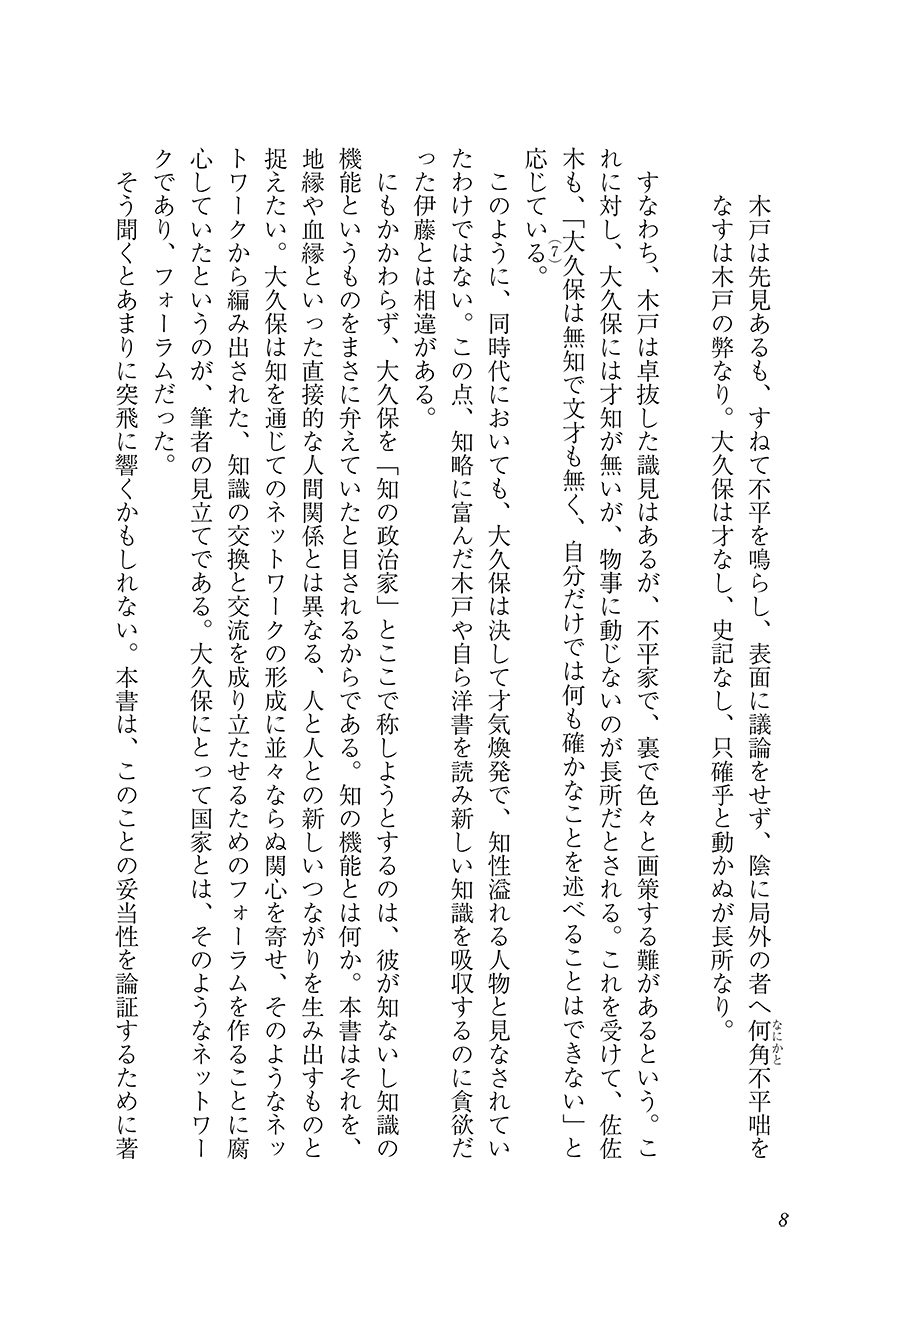 木戸は先見あるも、すねて不平を鳴らし、表面に議論をせず、陰に局外の者へ何角不平咄を
なにかと
なすは木戸の弊なり。大久保は才なし、史記なし、只確乎と動かぬが長所なり。
すなわち、木戸は卓抜した識見はあるが、不平家で、裏で色々と画策する難があるという。こ
れに対し、大久保には才知が無いが、物事に動じないのが長所だとされる。これを受けて、佐佐
木も、「大久保は無知で文才も無く、自分だけでは何も確かなことを述べることはできない」と
応じている(7)。
このように、同時代においても、大久保は決して才気煥発で、知性溢れる人物と見なされてい
たわけではない。この点、知略に富んだ木戸や自ら洋書を読み新しい知識を吸収するのに貪欲だ
った伊藤とは相違がある。
にもかかわらず、大久保を「知の政治家」とここで称しようとするのは、彼が知ないし知識の
機能というものをまさに弁えていたと目されるからである。知の機能とは何か。本書はそれを、
地縁や血縁といった直接的な人間関係とは異なる、人と人との新しいつながりを生み出すものと
捉えたい。大久保は知を通じてのネットワークの形成に並々ならぬ関心を寄せ、そのようなネッ
トワークから編み出された、知識の交換と交流を成り立たせるためのフォーラムを作ることに腐
心していたというのが、筆者の見立てである。大久保にとって国家とは、そのようなネットワー
クであり、フォーラムだった。
そう聞くとあまりに突飛に響くかもしれない。本書は、このことの妥当性を論証するために著
8